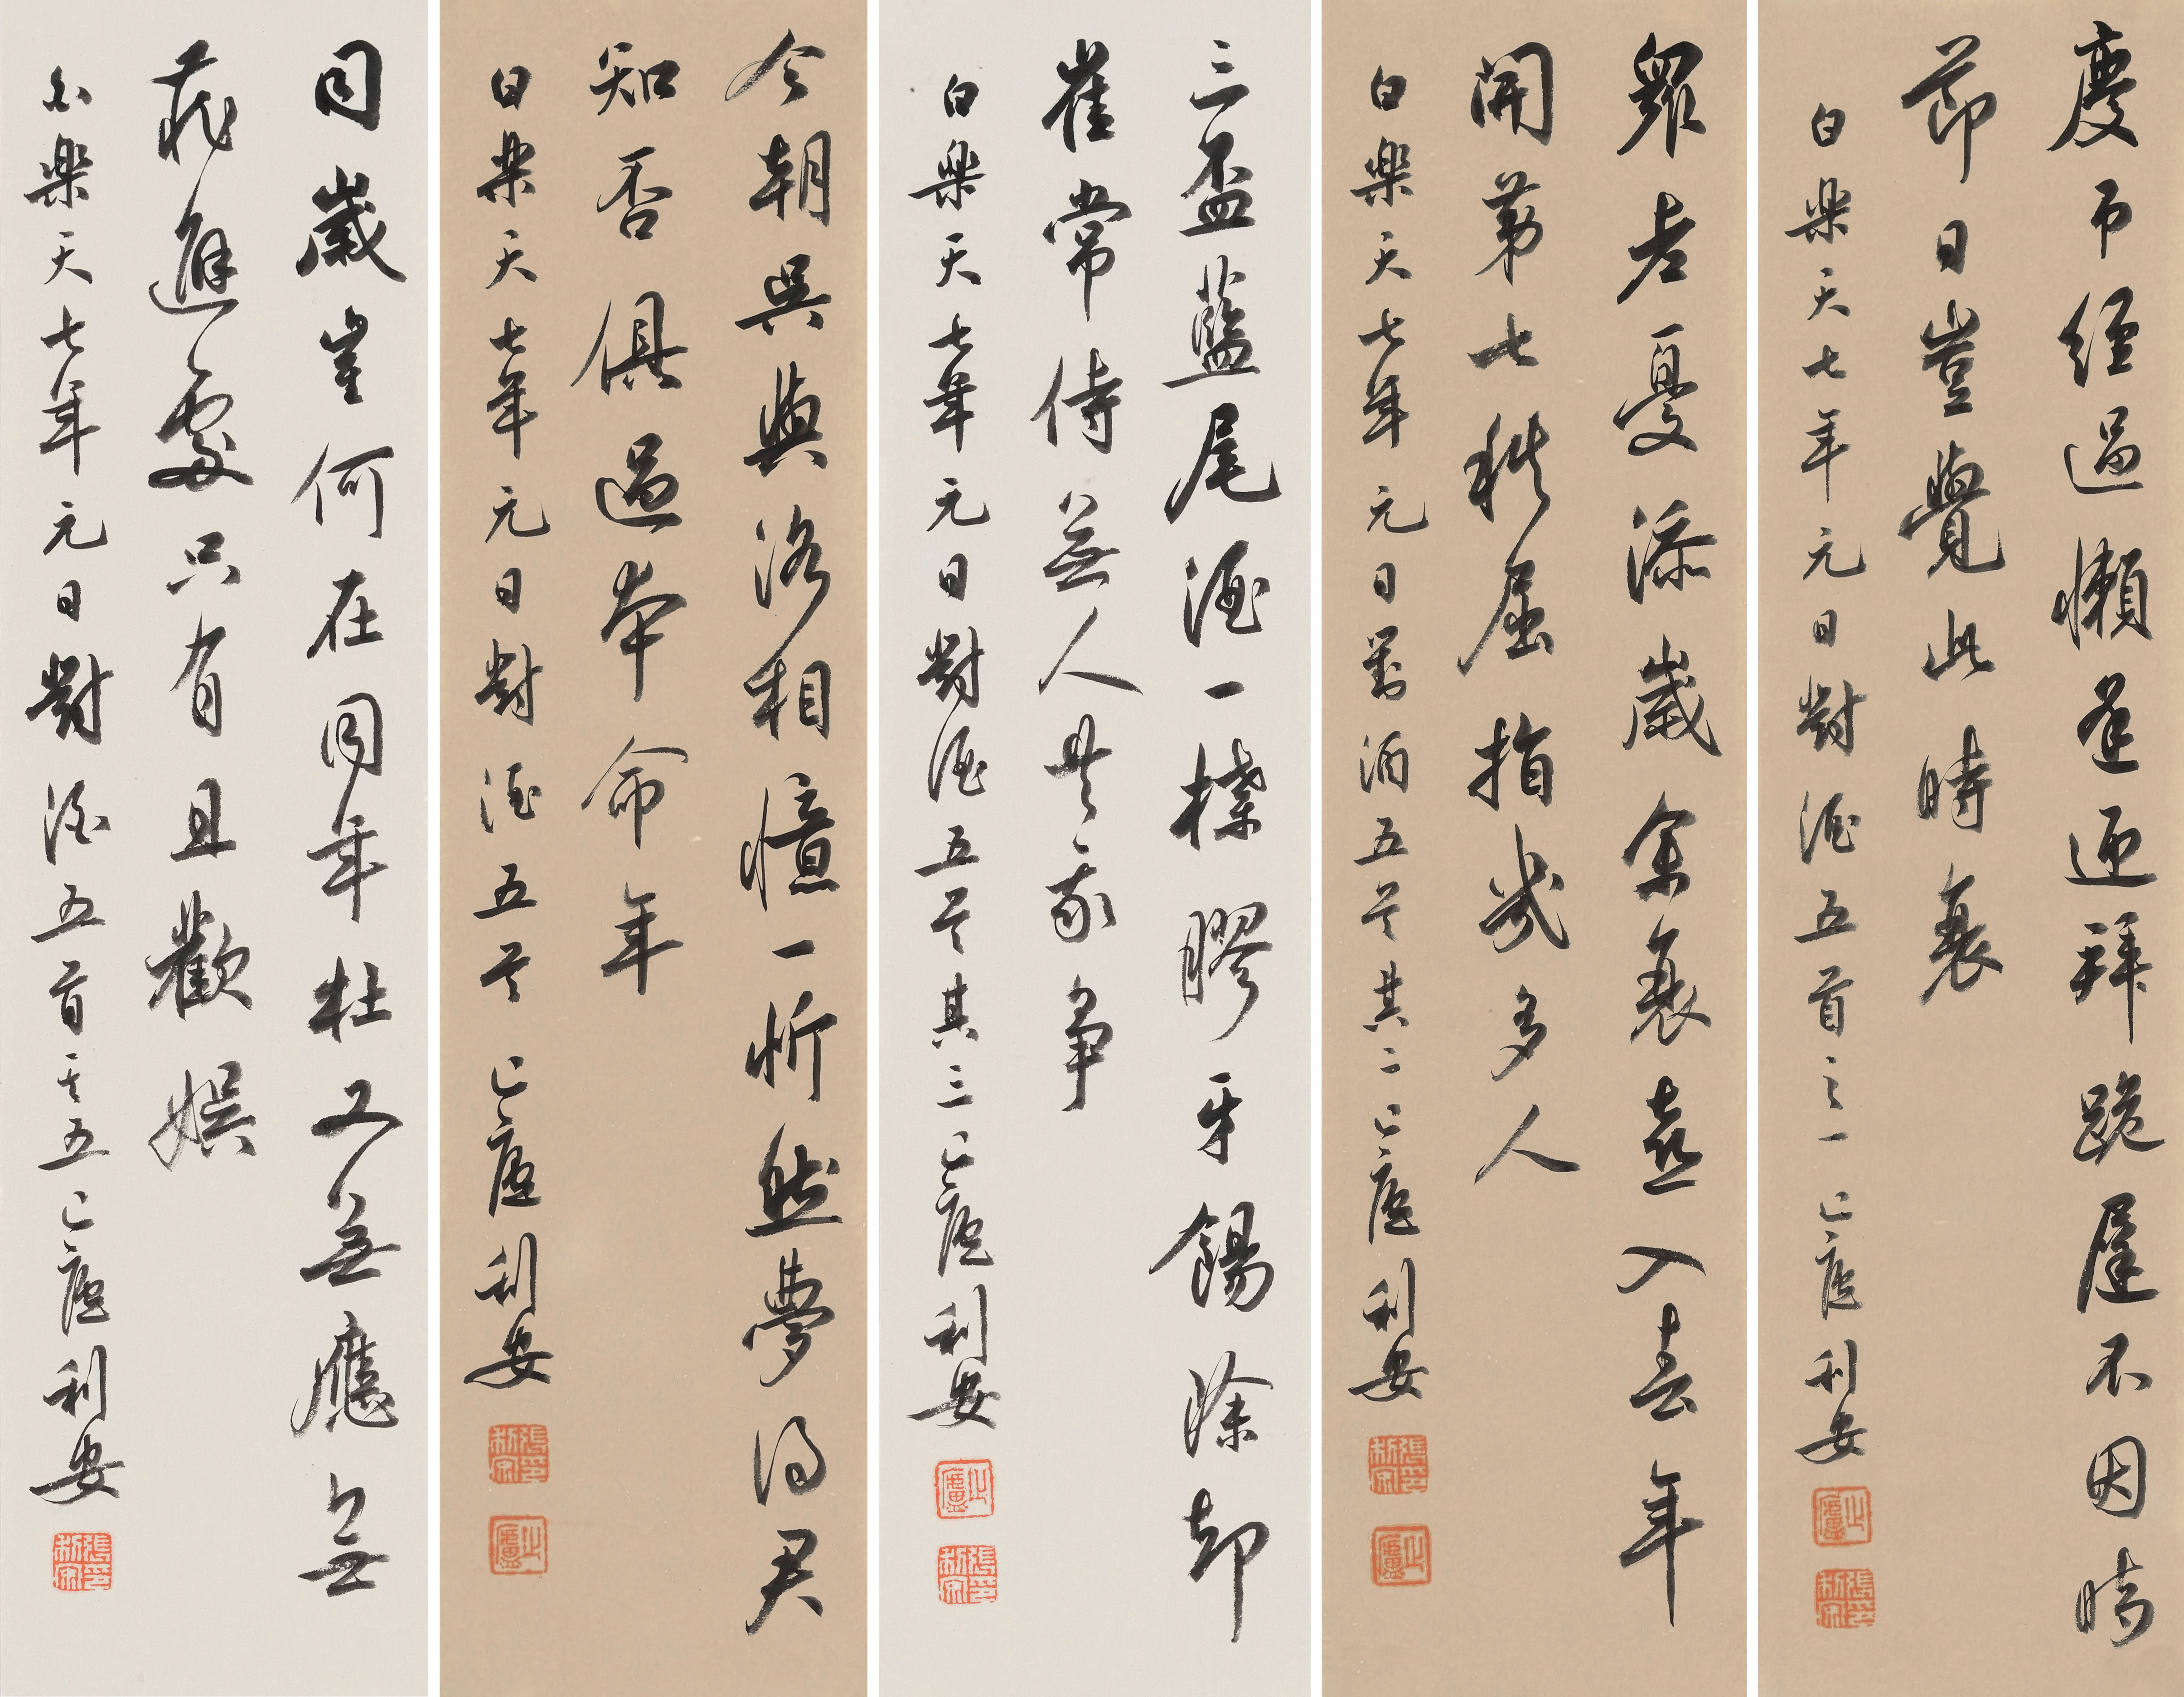 慶弔經過懶逢迎拜跪遲不因時
節日豈覺此時衰
白樂天七年元日對酒五首之一 已廬利安
眾老憂添歲余衰喜入去年
開第七秩屈指幾多人
白樂天七年元日對酒五首其二 已廬利安
三盃藍尾酒一楪膠牙餳除却
崔常侍無人共我爭
白樂天七年元日對酒五首其三 已廬利安
今朝吳與洛相憶一忻然夢得君
知否俱過本命年
白樂天七年元日對酒五首 已廬利安
同歲崔何在同年杜又無應無
藏避處只有且歡娛
白樂天七年元日對酒五首其五 已廬利安